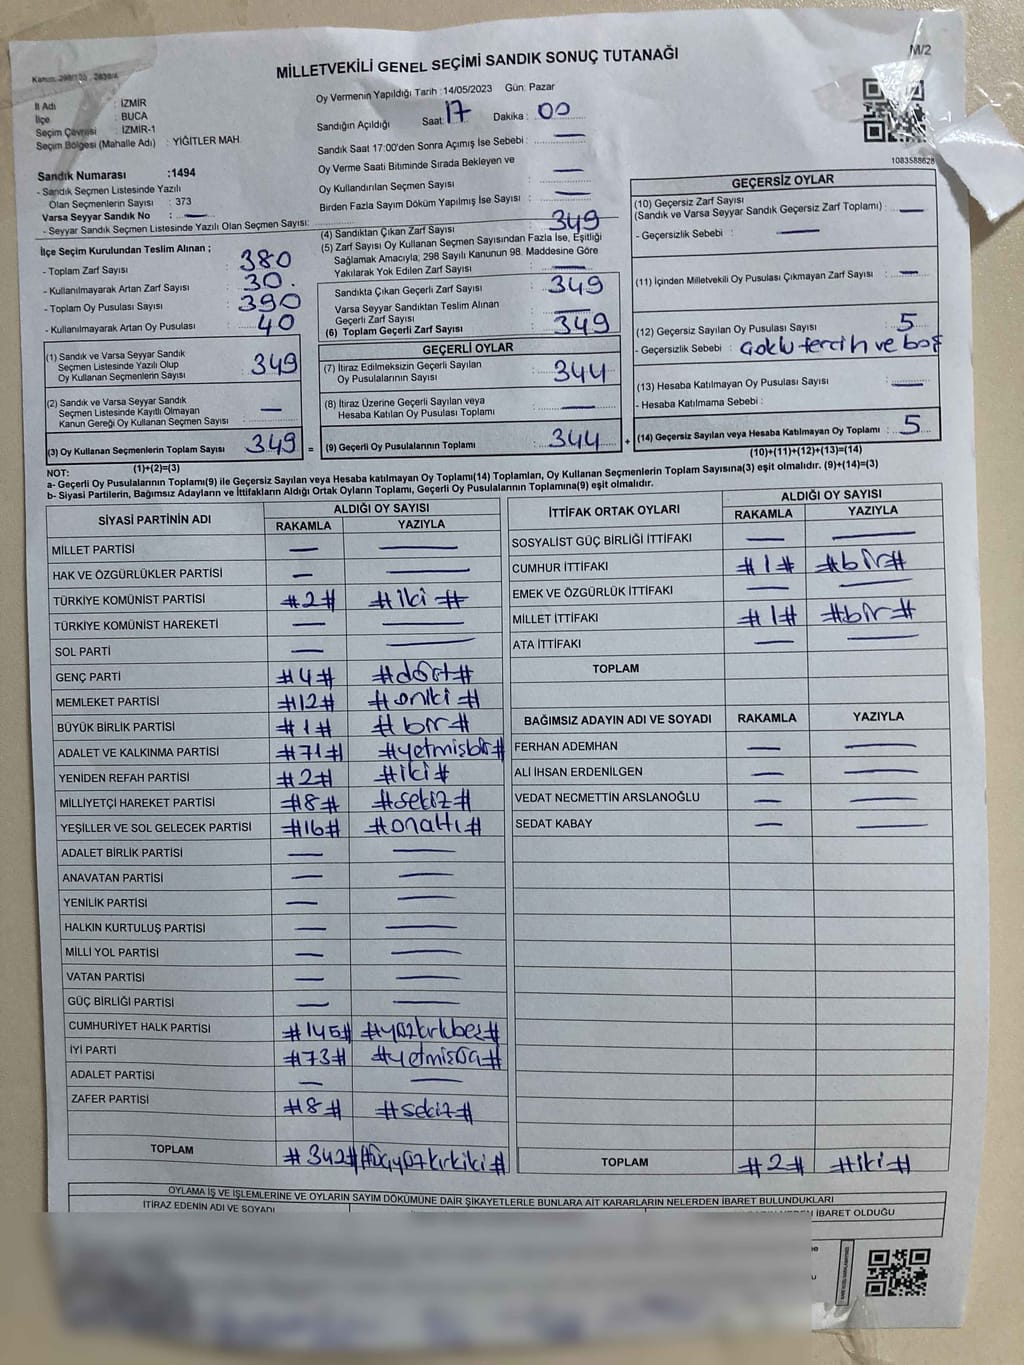 Kanun: 298/105 , 2839/4
MİLLETVEKİLİ GENEL SEÇİMİ SANDIK SONUÇ TUTANAĞI
M/2
İl Adı : İZMİR
İlçe : BUCA
Seçim Çevresi : İZMİR-1
Seçim Bölgesi (Mahalle Adı) : YİĞİTLER MAH
Sandık Numarası :1494
- Sandık Seçmen Listesinde Yazılı
Olan Seçmenlerin Sayısı : 373
Varsa Seyyar Sandık No : —
- Seyyar Sandık Seçmen Listesinde Yazılı Olan Seçmen Sayısı:
Oy Vermenin Yapıldığı Tarih :14/05/2023 Gün: Pazar
Sandığın Açıldığı Saat: 17 Dakika : 00
Sandık Saat 17:00'den Sonra Açımış İse Sebebi : —
Oy Verme Saati Bitiminde Sırada Bekleyen ve
Oy Kullandırılan Seçmen Sayısı : —
Birden Fazla Sayım Döküm Yapılmış İse Sayısı : —
1083588628
İlçe Seçim Kurulundan Teslim Alınan ;
- Toplam Zarf Sayısı : 380
- Kullanılmayarak Artan Zarf Sayısı : 30.
- Toplam Oy Pusulası Sayısı : 390
- Kullanılmayarak Artan Oy Pusulası : 40
(1) Sandık ve Varsa Seyyar Sandık
Seçmen Listesinde Yazılı Olup
Oy Kullanan Seçmenlerin Sayısı : 349
(2) Sandık ve Varsa Seyyar Sandık
Seçmen Listesinde Kayıtlı Olmayan
Kanun Gereği Oy Kullanan Seçmen Sayısı : —
(3) Oy Kullanan Seçmenlerin Toplam Sayısı : 349 =
(1)+(2)=(3)
(4) Sandıktan Çıkan Zarf Sayısı : 349
(5) Zarf Sayısı Oy Kullanan Seçmen Sayısından Fazla İse, Eşitliği
Sağlamak Amacıyla; 298 Sayılı Kanunun 98. Maddesine Göre
Yakılarak Yok Edilen Zarf Sayısı : —
Sandıkta Çıkan Geçerli Zarf Sayısı : 349
Varsa Seyyar Sandıktan Teslim Alınan
Geçerli Zarf Sayısı : —
(6) Toplam Geçerli Zarf Sayısı : 349
GEÇERLİ OYLAR
(7) İtiraz Edilmeksizin Geçerli Sayılan
Oy Pusulalarının Sayısı : 344
(8) İtiraz Üzerine Geçerli Sayılan veya
Hesaba Katılan Oy Pusulası Toplamı : —
(9) Geçerli Oy Pusulalarının Toplamı : 344 +
GEÇERSİZ OYLAR
(10) Geçersiz Zarf Sayısı
(Sandık ve Varsa Seyyar Sandık Geçersiz Zarf Toplamı) : —
- Geçersizlik Sebebi : —
(11) İçinden Milletvekili Oy Pusulası Çıkmayan Zarf Sayısı : —
(12) Geçersiz Sayılan Oy Pusulası Sayısı : 5
- Geçersizlik Sebebi : Çoklu tercih ve boş
(13) Hesaba Katılmayan Oy Pusulası Sayısı : —
- Hesaba Katılmama Sebebi :
(14) Geçersiz Sayılan veya Hesaba Katılmayan Oy Toplamı : 5
(10)+(11)+(12)+(13)=(14)
NOT:
a- Geçerli Oy Pusulalarının Toplamı(9) ile Geçersiz Sayılan veya Hesaba katılmayan Oy Toplamı(14) Toplamları, Oy Kullanan Seçmenlerin Toplam Sayısına(3) eşit olmalıdır. (9)+(14)=(3)
b- Siyasi Partilerin, Bağımsız Adayların ve İttifakların Aldığı Ortak Oyların Toplamı, Geçerli Oy Pusulalarının Toplamına(9) eşit olmalıdır.
SİYASİ PARTİNİN ADI ALDIĞI OY SAYISI
RAKAMLA YAZIYLA
MİLLET PARTİSİ — —
HAK VE ÖZGÜRLÜKLER PARTİSİ — —
TÜRKİYE KOMÜNİST PARTİSİ #2# #iki#
TÜRKİYE KOMÜNİST HAREKETİ — —
SOL PARTİ — —
GENÇ PARTİ #4# #dört#
MEMLEKET PARTİSİ #12# #oniki#
BÜYÜK BİRLİK PARTİSİ #1# #bir#
ADALET VE KALKINMA PARTİSİ #71# #yetmişbir#
YENİDEN REFAH PARTİSİ #2# #iki#
MİLLİYETÇİ HAREKET PARTİSİ #8# #sekiz#
YEŞİLLER VE SOL GELECEK PARTİSİ #16# #onaltı#
ADALET BİRLİK PARTİSİ — —
ANAVATAN PARTİSİ — —
YENİLİK PARTİSİ — —
HALKIN KURTULUŞ PARTİSİ — —
MİLLİ YOL PARTİSİ — —
VATAN PARTİSİ — —
GÜÇ BİRLİĞİ PARTİSİ — —
CUMHURİYET HALK PARTİSİ #145# #yüzkırkbeş#
İYİ PARTİ #73# #yetmişüç#
ADALET PARTİSİ — —
ZAFER PARTİSİ #8# #sekiz#
TOPLAM #342# #üçyüzkırkiki#
İTTİFAK ORTAK OYLARI ALDIĞI OY SAYISI
RAKAMLA YAZIYLA
SOSYALİST GÜÇ BİRLİĞİ İTTİFAKI — —
CUMHUR İTTİFAKI #1# #bir#
EMEK VE ÖZGÜRLÜK İTTİFAKI — —
MİLLET İTTİFAKI #1# #bir#
ATA İTTİFAKI — —
TOPLAM
BAĞIMSIZ ADAYIN ADI VE SOYADI RAKAMLA YAZIYLA
FERHAN ADEMHAN — —
ALİ İHSAN ERDENİLGEN — —
VEDAT NECMETTİN ARSLANOĞLU — —
SEDAT KABAY — —
TOPLAM #2# #iki#
OYLAMA İŞ VE İŞLEMLERİNE VE OYLARIN SAYIM DÖKÜMÜNE DAİR ŞİKAYETLERLE BUNLARA AİT KARARLARIN NELERDEN İBARET BULUNDUKLARI
İTİRAZ EDENİN ADI VE SOYADI
İBARET OLDUĞU